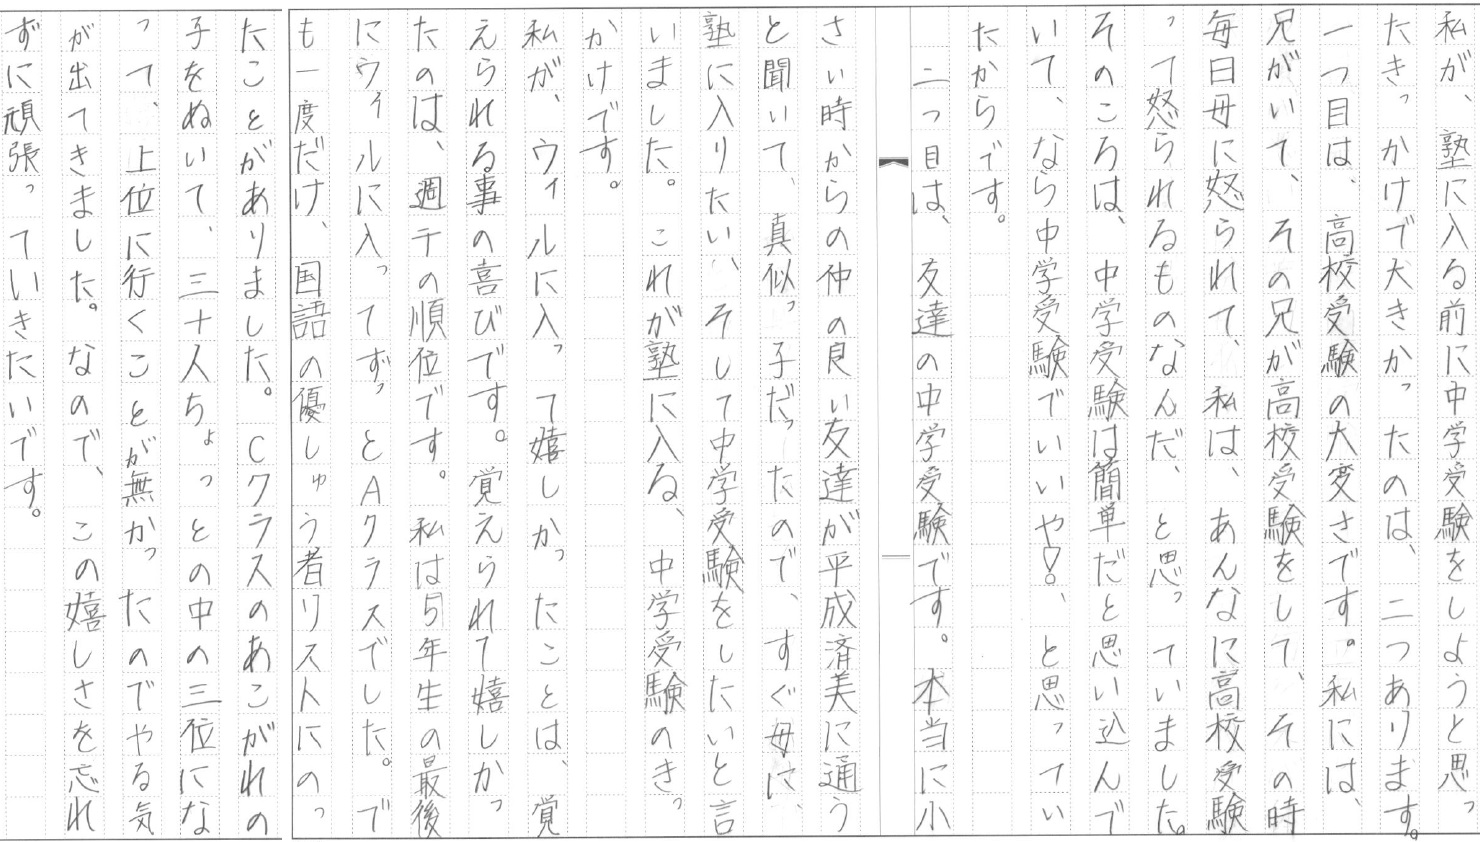 私が、塾に入る前に中学受験をしようと思っ
たきっかけで大きかったのは、二つあります。
一つ目は、高校受験の大変さです。私には、
兄がいて、その兄が高校受験をして、その時
毎日母に怒られて、私は、あんなに高校受験
って怒られるものなんだ、と思っていました。
そのころは、中学受験は簡単だと思い込んで
いて、なら中学受験でいいや!、と思ってい
たからです。
二つ目は、友達の中学受験です。本当に小
さい時からの仲の良い友達が平成済美に通う
と聞いて、真似っ子だったので、すぐ母に、
塾に入りたい、そして中学受験をしたいと言
いました。これが塾に入る、中学受験のきっ
かけです。
私が、ウィルに入って嬉しかったことは、覚
えられる事の喜びです。覚えられて嬉しかっ
たのは、週テの順位です。私は5年生の最後
にウィルに入ってずっとAクラスでした。で
も一度だけ、国語の優しゅう者リストにのっ
たことがありました。Cクラスのあこがれの
子をぬいて、三十人ちょっとの中の三位にな
って、上位に行くことが無かったのでやる気
が出てきました。なので、この嬉しさを忘れ
ずに頑張っていきたいです。